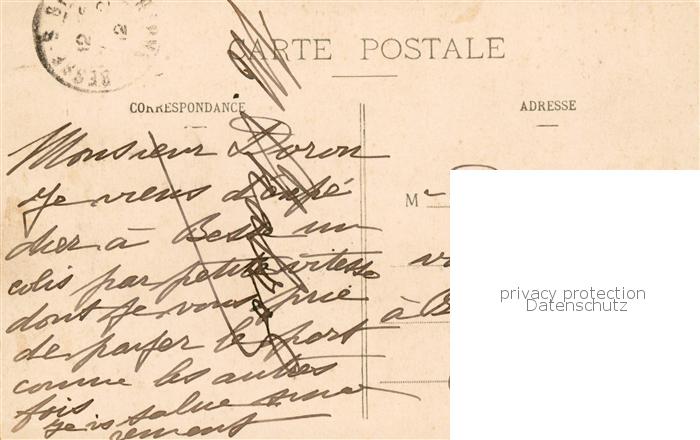 CARTE POSTALE
CORRESPONDANCE
ADRESSE
Monsieur Doron
Je viens d'expé
dier à Besse un
colis par petite vitesse
dont je vous prie
de payer le port
comme les autres
fois
Je vs salue
rement
Mr
à B
privacy protection
Datenschutz